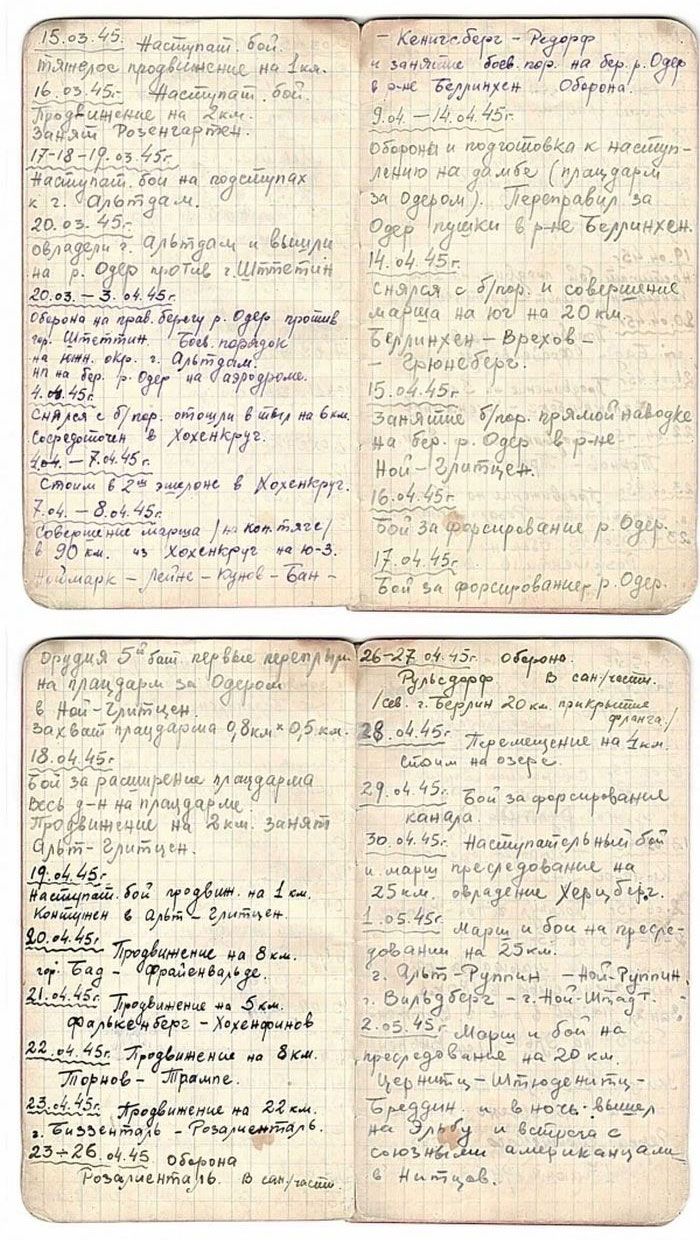 15.03.45. Наступат. бой.
тяжелое продвижение на 1 км.
16.03.45г. Наступат. бой.
Продвижение на 2 км.
Занят Розенгартен.
17-18-19.03.45г.
Наступат. бои на подступах
к г. Альтдам.
20.03.45г.
овладели г. Альтдам и вышли
на р. Одер против г. Штеттин
20.03. – 3.04.45г.
Оборона на прав. берегу р. Одер против
гор. Штеттин. Боев. порядок
на южн. окр. г. Альтдам.
нп на бер. р. Одер на аэродроме.
4.04.45г.
Снялся с б/пор. отошли в тыл на 6 км.
Сосредоточен в Хохенкруг.
4.04. – 7.04.45г.
Стоим в 2ом эшелоне в Хохенкруг.
7.04. – 8.04.45г.
Совершение марша /на кон. тяге/
в 90 км. из Хохенкруг на ю-з.
Ноймарк – Лейне – Кунов – Бан –
– Кенигсберг – Редорф
и занятие боев. пор. на бер. р. Одер
в р-не Беллинхен Оборона.
9.04. – 14.04.45г.
Оборона и подготовка к наступ-
лению на дамбе (плацдарм
за Одером). Переправил за
Одер пушки в р-не Беллинхен.
14.04.45г.
Снялся с б/пор. и совершение
марша на юг на 20 км.
Беллинхен – Врехов –
– Грюнеберг.
15.04.45г.
Занятие б/пор. прямой наводке
на бер. р. Одер в р-не
Ной – Глитцен.
16.04.45г.
Бой за форсирование р. Одер.
17.04.45г.
Бой за форсирование р. Одер.
Орудия 5й бат. первые переплыли
на плацдарм за Одером
в Ной-Глитцен.
Захват плацдарма 0,8 км × 0,5 км.
18.04.45г.
Бой за расширение плацдарма
Весь д-н на плацдарме.
Продвижение на 2 км. занят
Альт-Глитцен.
19.04.45г.
Наступат. бой продвиж. на 1 км.
Контужен в Альт-Глитцен.
20.04.45г. Продвижение на 8 км.
гор. Бад – Фрайенвальде.
21.04.45г. Продвижение на 5 км.
Фалькенберг – Хохенфинов
22.04.45г. Продвижение на 8 км.
Торнов – Трампе.
23.04.45г. Продвижение на 22 км.
г. Биззенталь – Розалиенталь.
23÷26.04.45 Оборона
Розалиенталь. В сан/части.
26-27.04.45г. Оборона.
Рульсдорф В сан./части.
/сев. г. Берлин 20 км. прикрытие
фланга./
28.04.45г. Перемещение на 4 км.
стоим на озере.
29.04.45г. Бой за форсирование
канала.
30.04.45г. Наступательный бой
и марш преследование на
25 км. овладение Херцберг.
1.05.45г. Марш и бои на пресле-
довании на 25 км.
г. Альт-Руппин – Ной-Руппин
г. Вильдберг – г. Ной-Штадт. –
2.05.45г Марш и бой на
преследование на 20 км.
Цернитц – Штюденитц –
Бреддин. и в ночь вышел
на Эльбу и встреча с
союзными американцами
в Нитцов.